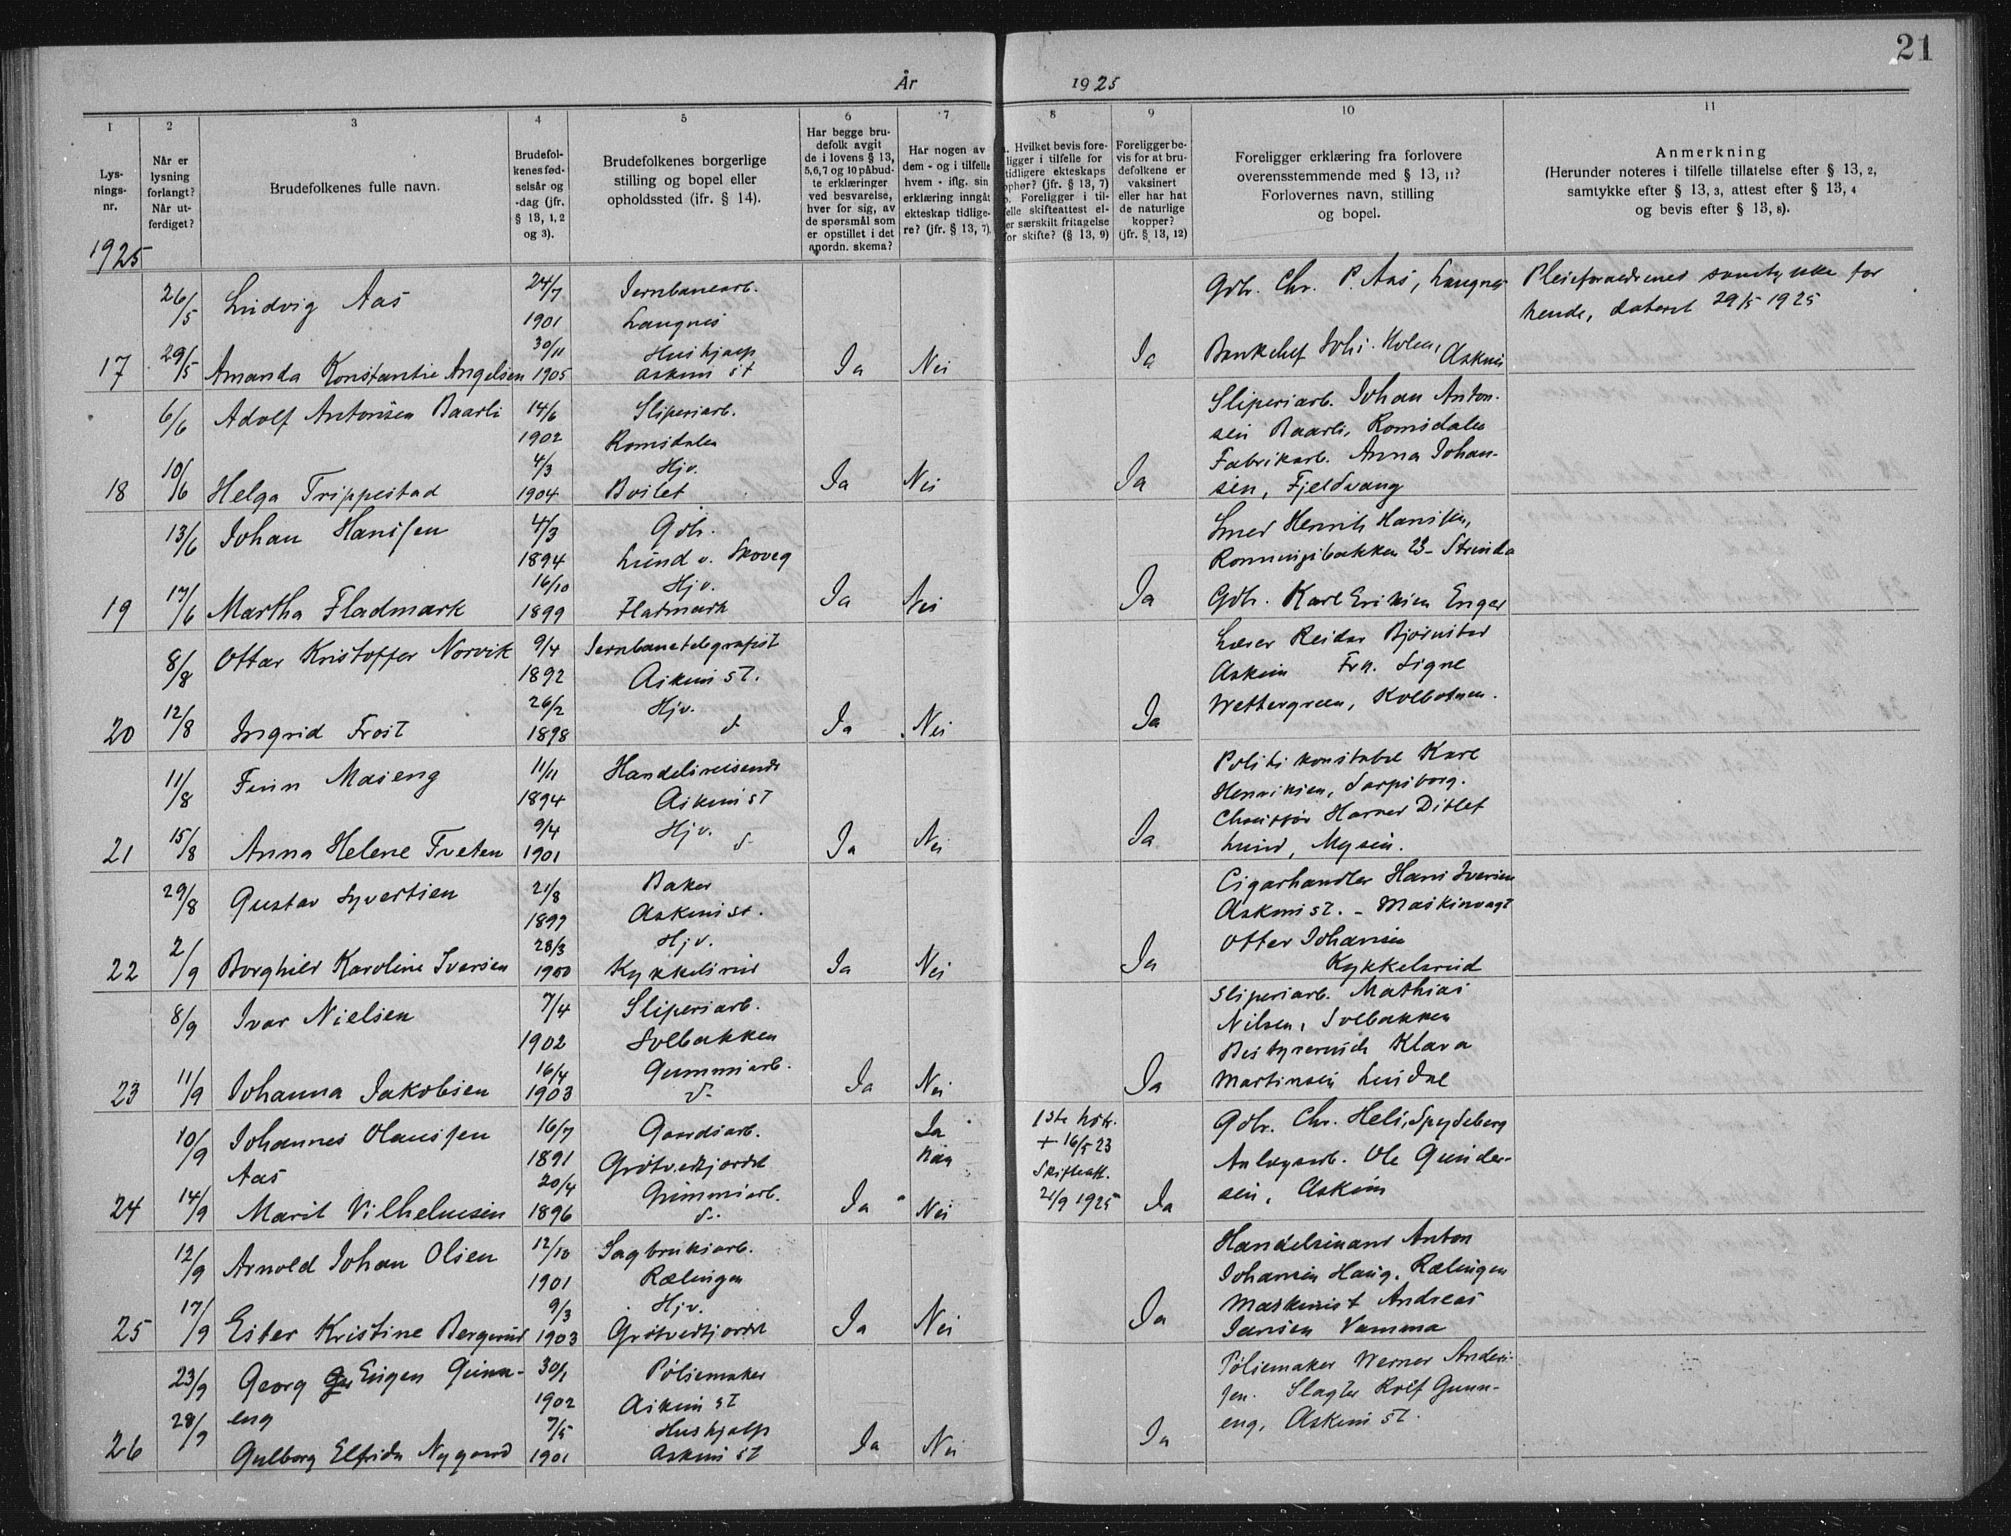 21
År 1925
1 2 3 4 5 6 7 8 9 10 11
Lysningsnr.
Når er lysning forlangt? Når utferdiget?
Brudefolkenes fulle navn.
Brudefolkenes fødselsår og -dag (jfr. § 13, 1, 2 og 3).
Brudefolkenes borgerlige stilling og bopel eller opholdssted (ifr. § 14).
Har begge brudefolk avgit de i lovens § 13, 5, 6, 7 og 10 påbudte erklæringer ved besvarelse, hver for sig, av de spørsmål som er opstillet i det anordn. skema?
Har nogen av dem - og i tilfelle hvem - iflg. sin erklæring inngåt ekteskap tidligere? (jfr. § 13, 7).
. Hvilket bevis foreligger i tilfelle for tidligere ekteskaps ophør? (jfr. § 13, 7) Foreligger i tilfelle skifteattest eller særskilt fritagelse for skifte? (§ 13, 9)
Foreligger bevis for at brudefolkene er vaksinert eller har hat de naturlige kopper? (jfr. § 13, 12)
Foreligger erklæring fra forlovere overensstemmende med § 13, 11? Forlovernes navn, stilling og bopel.
Anmerkning
(Herunder noteres i tilfelle tillatelse efter § 13, 2, samtykke efter § 13, 3, attest efter § 13, 4 og bevis efter § 13, 8).
1925
26/5 Ludvig Aas 24/7 Jernbanearb. Gdbr. Chr. P. Aas, Langnes Pleieforældrenes samtykke for
1901 Langnes hende, dateret 29/5 1925
17 29/5 Amanda Konstantie Angelsen 30/11 1905 Hushjælp Askim st Ja Nei Ja Bankchef Johs. Holen, Askim
6/6 Adolf Antonsen Baarli 14/6 Sliperiarb. Sliperiarb. Johan Anton-
1902 Romsdalen sen Baarli, Romsdalen
10/6 4/3 Hjv. Fabrikarb. Anna Johan-
18 Helga Trippestad 1904 Ja Nei Ja sen, Fjeldvang
13/6 Johan Hanssen 4/3 Gdbr. Smed Henrik Hanssen,
1894 Lund v. Skoveg 23 - Strinda
19 17/6 Martha Fladmark 16/10 1899 Hjv. Fladmark Ja Nei Ja Gdbr. Karl Eriksen Enger
8/8 Ottar Kristoffer Norvik 9/4 Jernbanetelegrafist Lærer Reidar Bjørnstad
1892 Askim st. Askim Frk. Signe
12/8 26/2 Hjv. Wettergreen, Kolbotnen.
20 Ingrid Frost 1898 d. Ja Nei Ja
11/8 Finn Maseng 11/11 Handelsreisende Politikonstabel Karl
1894 Askim st Henriksen, Sarpsborg.
15/8 9/4 Hjv. Chauffør Harner Ditlef
21 Anna Helene Tveten 1901 d. Ja Nei Ja Lund, Mysen.
29/8 Gustav Syvertsen 21/8 Baker Cigarhandler Hans Iversen
1899 Askim st. Askim st. - Maskinvagt
2/9 28/3 Hjv. Otter Johansen
22 Borghild Karoline Iversen 1900 Kykkelsrud Ja Nei Ja Kykkelsrud
8/9 Ivar Nielsen 7/4 Sliperiarb. Sliperiarb. Mathias
1902 Solbakken Nilsen, Solbakken
16/4 Gummiarb. Bestyrerinde Klara
23 11/9 Johanna Jakobsen 1903 d. Ja Nei Ja Martinsen Lindal
10/9 Johannes Olaussen 16/7 Gaardsarb. Ja 1ste hstr. Gdbr. Chr. Heli, Spydeberg
Aas 1891 Grøtvedtjordet han + 16/5 23 Anlægsarb. Ole Gunder-
14/9 20/4 Gummiarb. Skifteatt. sen, Askim
24 Marit Vilhelmsen 1896 d. Ja Nei 21/9 1925 Ja
12/9 Arnold Johan Olsen 12/10 Sagbruksarb. Handelsmand Anton
1901 Rælingen Johansen Haug, Rælingen
17/9 9/3 Hjv. Maskinist Andreas
25 Ester Kristine Bergerud 1903 Grøtvedtjordet Ja Nei Ja Jansen Vamma
23/9 Georg Eugen Gunn- 30/1 Pølsemaker Pølsemaker Werner Anders-
eng 1902 Askim st sen. Slagter Rolf Gunn-
28/9 7/5 Hushjælp eng, Askim st.
26 Gulborg Elfrida Nygaard 1901 Askim st Ja Nei Ja